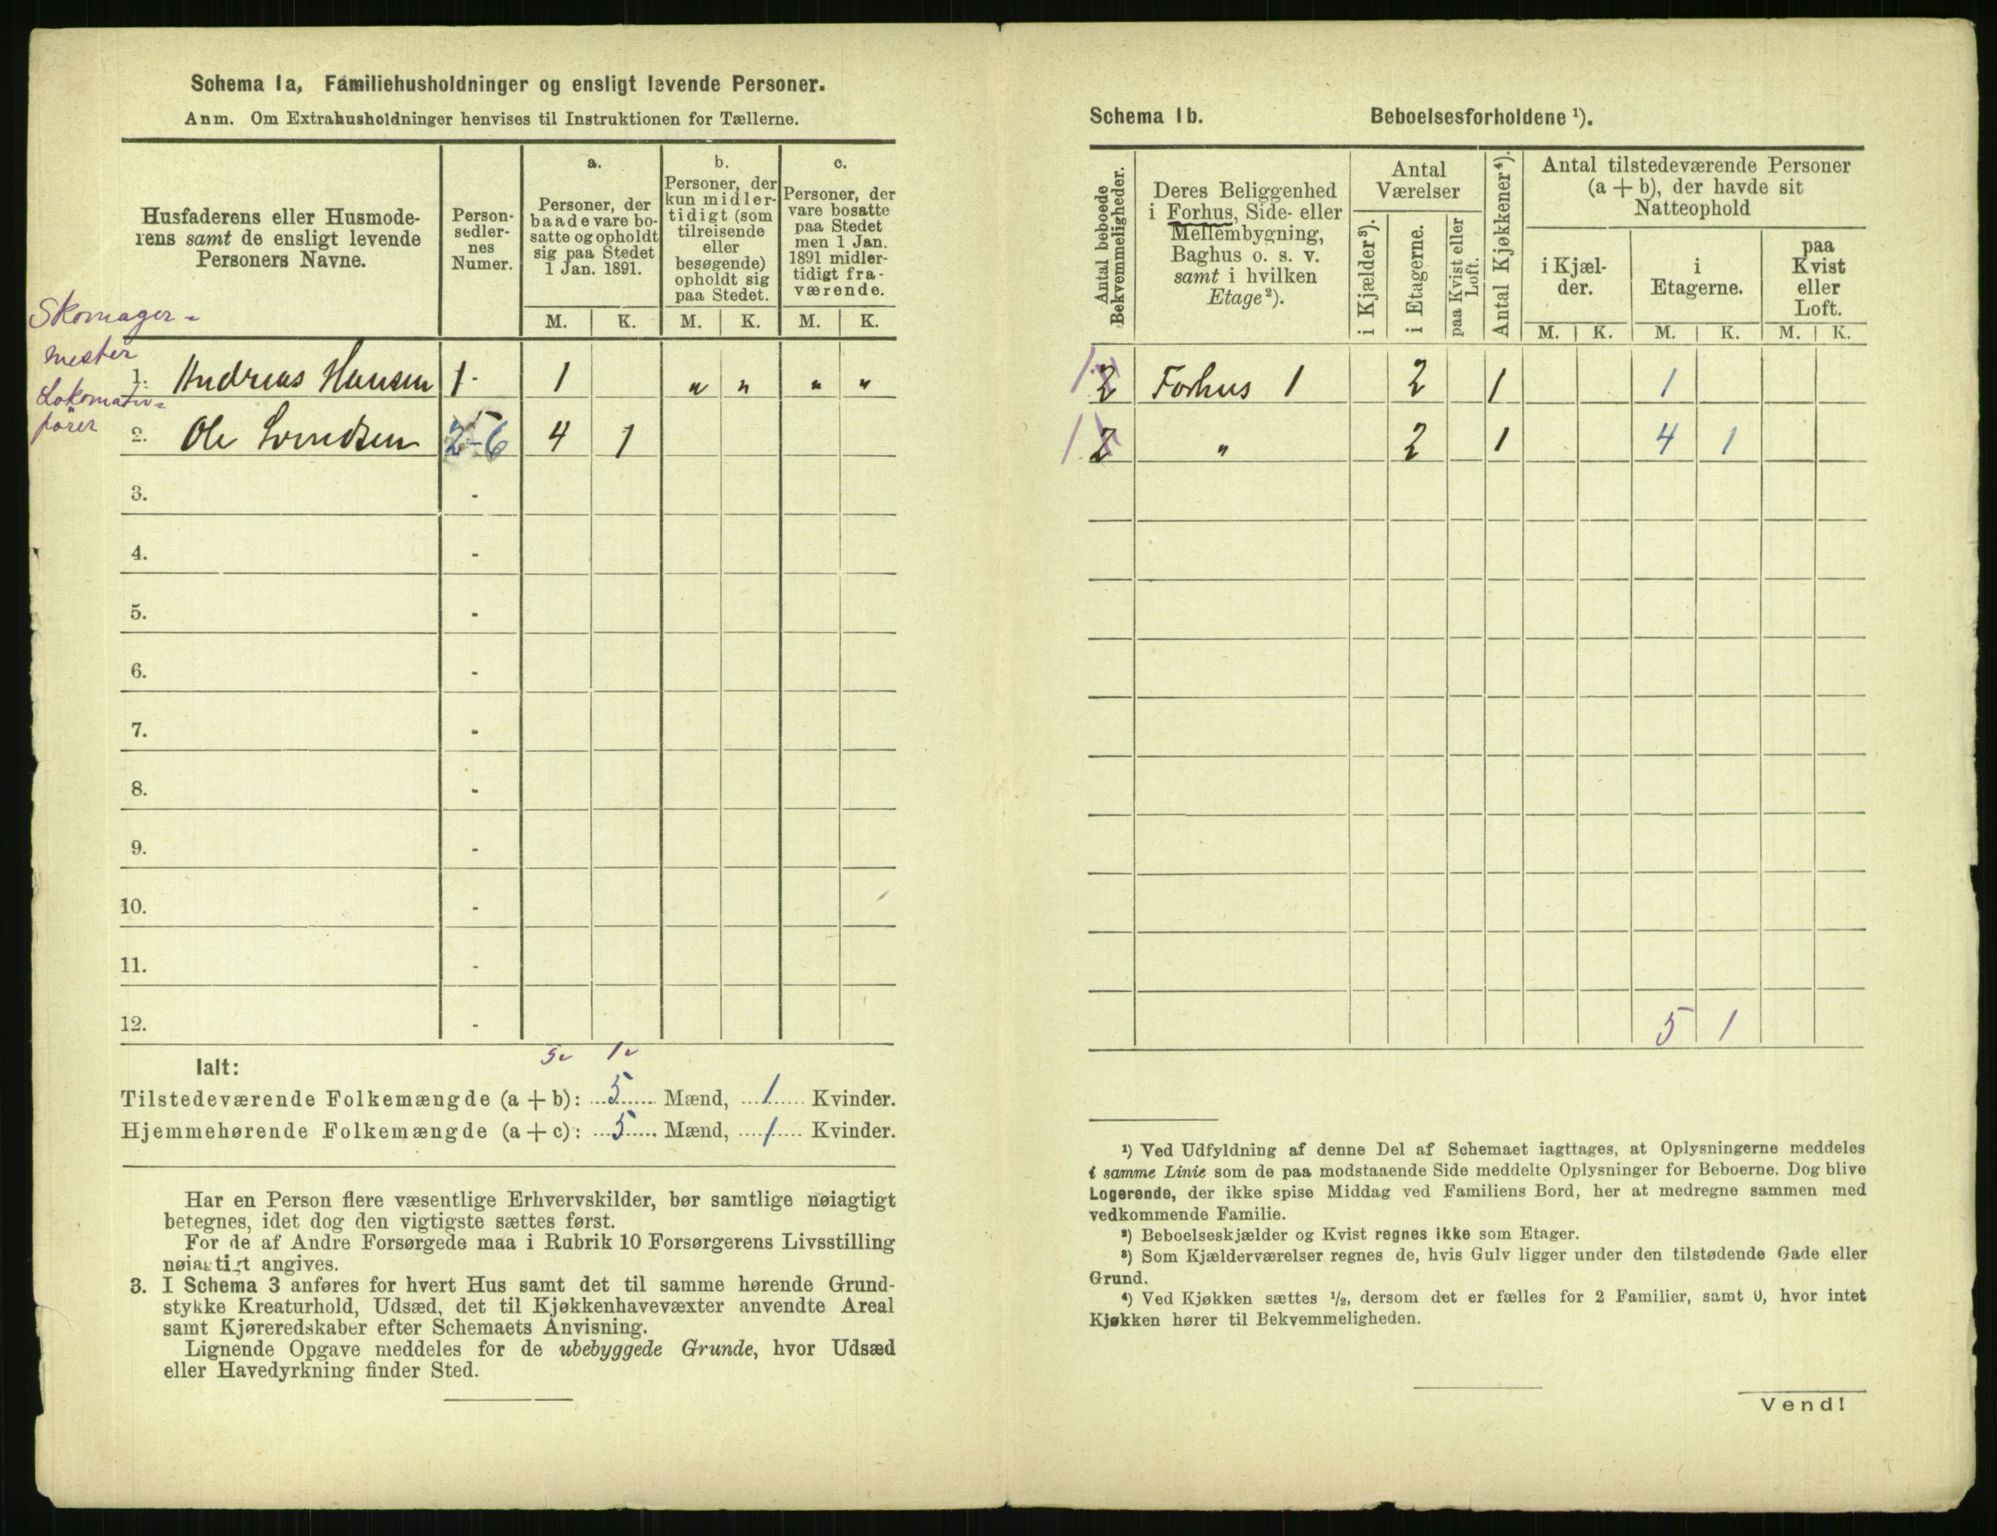 Schema 1a, Familiehusholdninger og ensligt levende Personer.
Anm. Om Extrahusholdninger henvises til Instruktionen for Tællerne.
Husfaderens eller Husmode-
rens samt de ensligt levende
Personers Navne.
Person-
sedler-
nes
Numer.
a.
Personer, der
baade vare bo-
satte og opholdt
sig paa Stedet
1 Jan. 1891.
b.
Personer, der
kun midler-
tidigt (som
tilreisende
eller
besøgende)
opholdt sig
paa Stedet.
c.
Personer, der
vare bosatte
paa Stedet
men 1 Jan.
1891 midler-
tidigt fra-
værende.
M. K. M. K. M. K.
Skomager-
mester
1. Andreas Hansen 1- 1 " " " "
Lokomotiv-
fører
2. Ole Svendsen 2-6 4 1
3. -
4. -
5. -
6. -
7. -
8. -
9. -
10. -
11. -
12. -
5 1
Ialt:
Tilstedeværende Folkemængde (a + b): 5 Mænd, 1 Kvinder.
Hjemmehørende Folkemængde (a + c): 5 Mænd, 1 Kvinder.
Har en Person flere væsentlige Erhvervskilder, bør samtlige nøiagtigt
betegnes, idet dog den vigtigste sættes først.
For de af Andre Forsørgede maa i Rubrik 10 Forsørgerens Livsstilling
nøiagtigt angives.
3. I Schema 3 anføres for hvert Hus samt det til samme hørende Grund-
stykke Kreaturhold, Udsæd, det til Kjøkkenhavevæxter anvendte Areal
samt Kjøreredskaber efter Schemaets Anvisning.
Lignende Opgave meddeles for de ubebyggede Grunde, hvor Udsæd
eller Havedyrkning finder Sted.
Schema 1b. Beboelsesforholdene ¹).
Antal beboede
Bekvemmeligheder.
Deres Beliggenhed
i Forhus, Side- eller
Mellembygning,
Baghus o. s. v.
samt i hvilken
Etage²).
Antal
Værelser
i Kjælder³).
i Etagerne.
paa Kvist eller
Loft.
Antal Kjøkkener⁴).
Antal tilstedeværende Personer
(a + b), der havde sit
Natteophold
i Kjæl-
der.
i
Etagerne.
paa
Kvist
eller
Loft.
M. K. M. K. M. K.
1. 2 Forhus 1 2 1 1
1. 2 " 2 1 4 1
5 1
¹) Ved Udfyldning af denne Del af Schemaet iagttages, at Oplysningerne meddeles
i samme Linie som de paa modstaaende Side meddelte Oplysninger for Beboerne. Dog blive
Logerende, der ikke spise Middag ved Familiens Bord, her at medregne sammen med
vedkommende Familie.
²) Beboelseskjælder og Kvist regnes ikke som Etager.
³) Som Kjælderværelser regnes de, hvis Gulv ligger under den tilstødende Gade eller
Grund.
⁴) Ved Kjøkken sættes ½, dersom det er fælles for 2 Familier, samt 0, hvor intet
Kjøkken hører til Bekvemmeligheden.
Vend!